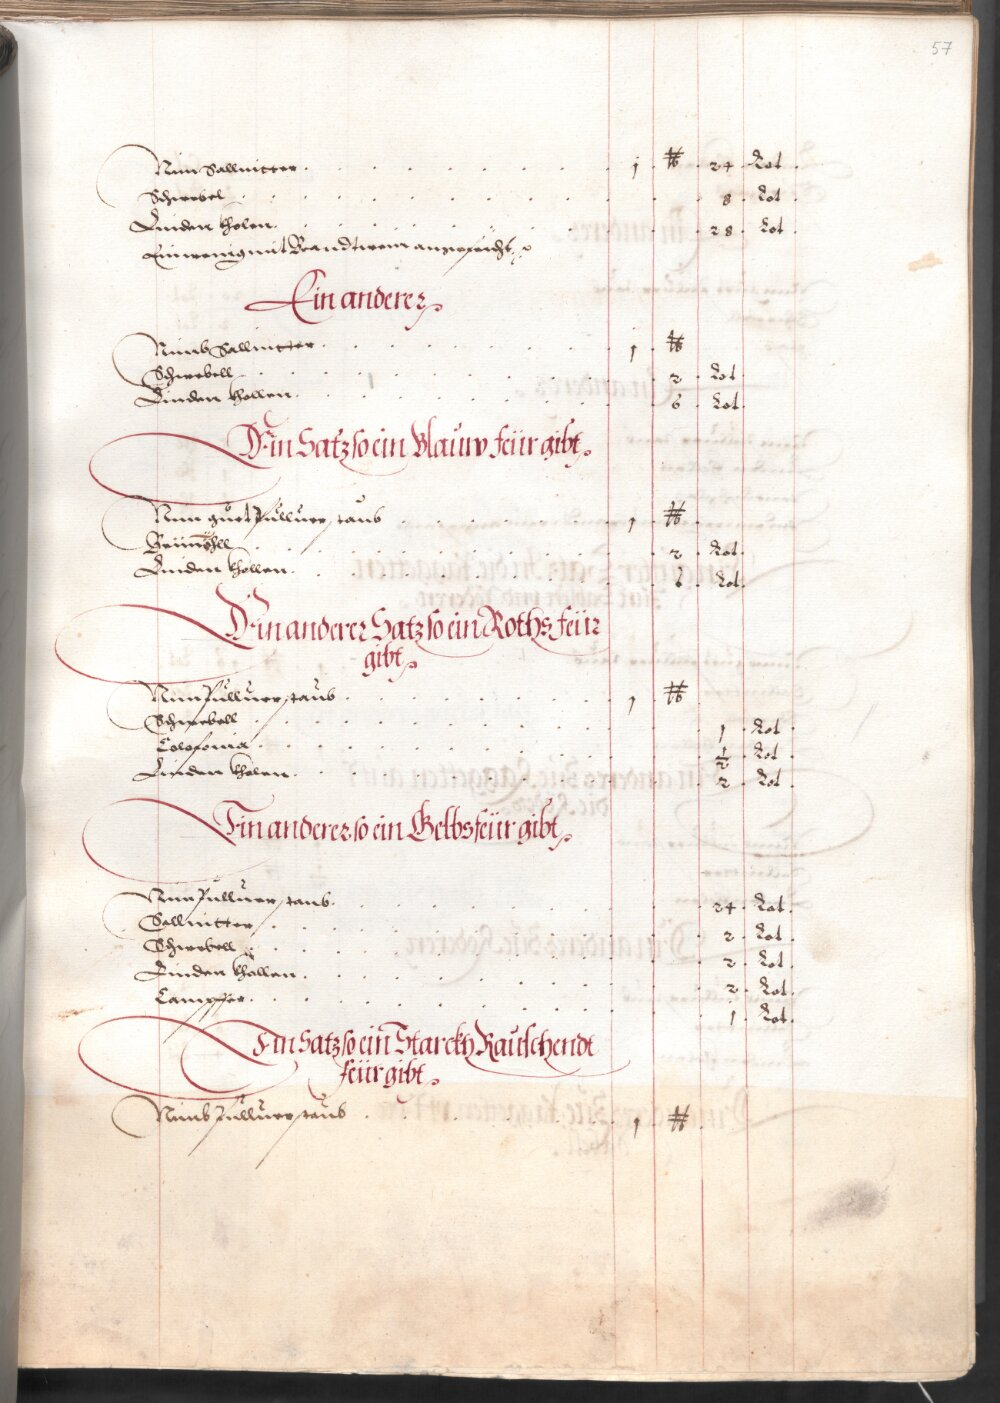 57
Nim Sallnitter . . . 1 . ℔ . 24 . Lot .
Schwebel . . . 8 . Lot .
Linden kholen . . . 28 . Lot
Ein wenig mit Brandtwein angefeicht
Ein anderer
Nimb Sallnitter . . . 1 . ℔
Schwebell . . . 2 . Lot
Linden khollen . . . 6 . Lot
Ein Satz so ein Blauw feür gibt
Nim guet Pulluer staub . . . 1 . ℔
. . . 2 . Lot
Linden khollen . . . 6 . Lot
Ein anderer Satz so ein Roths feür
gibt
Nim Pulluer staub . . . 1 . ℔
Schwebell . . . 1 . Lot
Colofonia . . . ½ . Lot
Linden kholen . . . 2 . Lot
Ein anderer so ein Gelbs feür gibt
Nim Pulluer staub . . . 24 . Lot
Sallnitter . . . 2 . Lot
Schwebell . . . 2 . Lot
Linden khollen . . . 2 . Lot
Campffer . . . 1 . Lot
Ein Satz so ein Starckh Rauschendt
feür gibt
Nimb Pulluerstaub . . . 1 . ℔